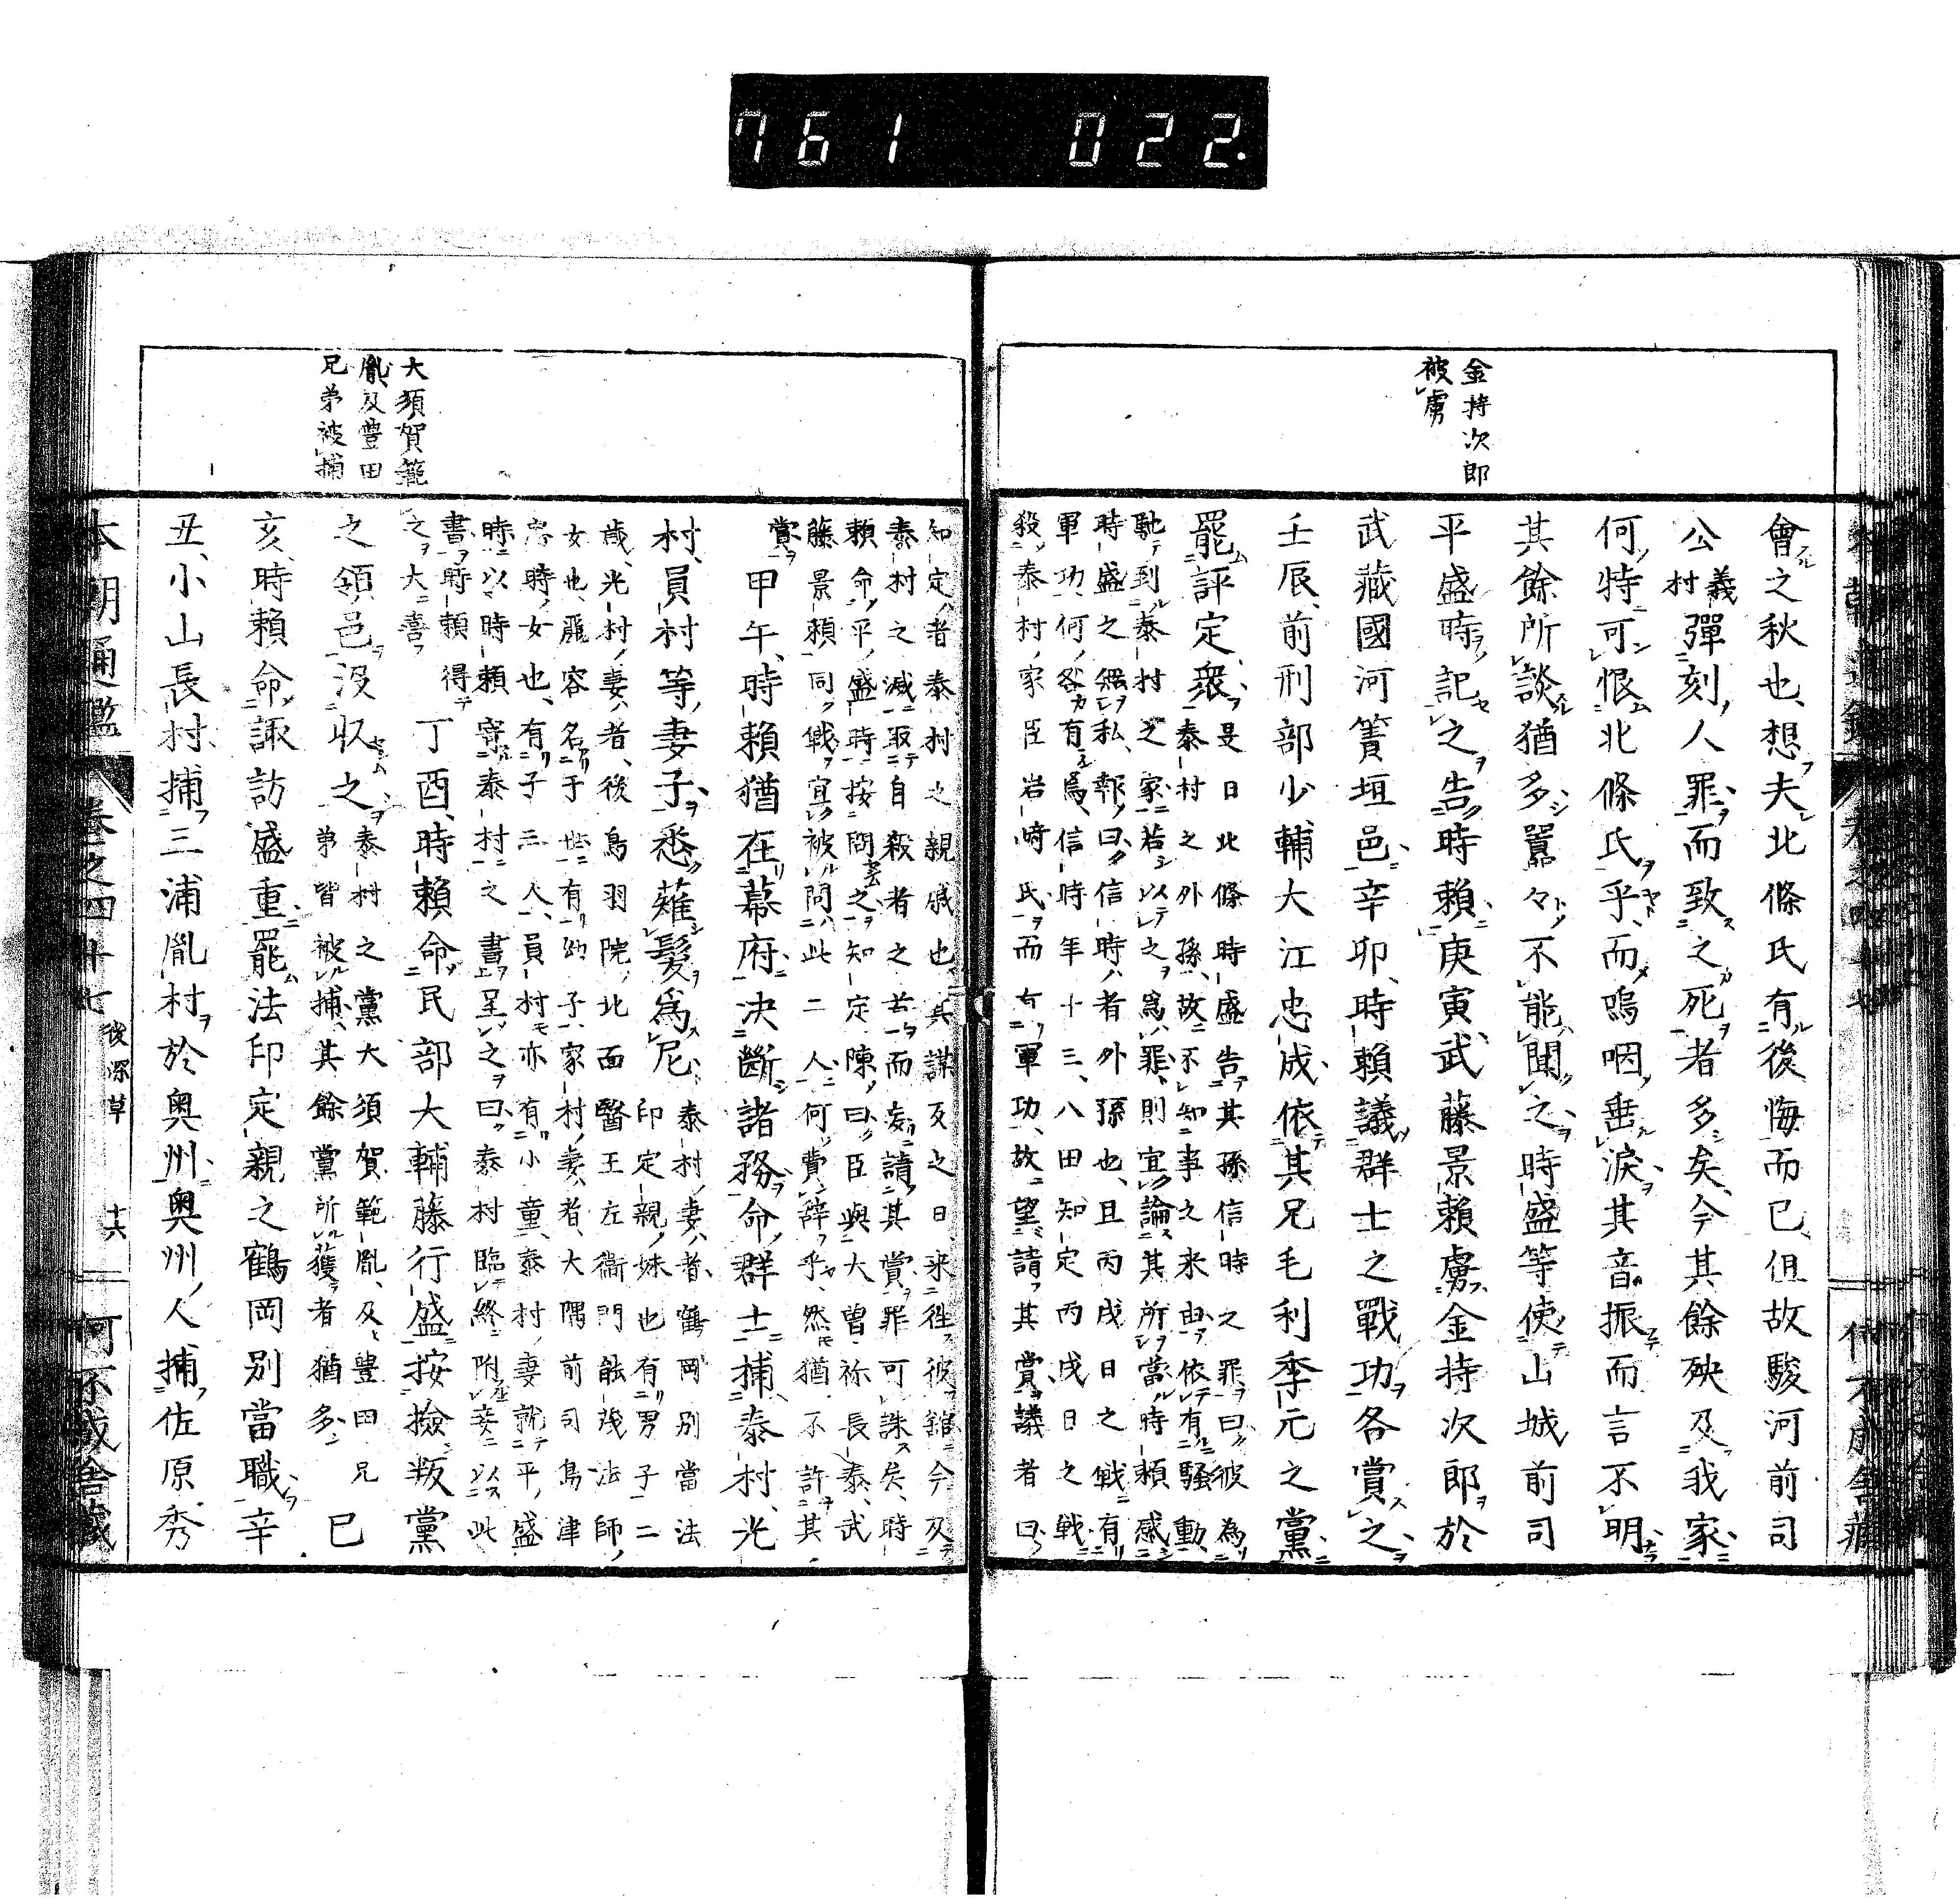 761 022.
金持次郎
被虜
會之秋也想夫北條氏有後悔而已但故駿河前司
公義村彈刻人罪而致之死者多矣今其餘殃及我家
何特可恨北條氏乎而嗚咽垂淚其音振而言不明
其餘所談猶多囂々不能聞之時盛等使山城前司
平盛時記之告時賴庚寅武藤景賴虜金持次郎於
武藏國河簣垣邑辛卯時賴議群士之戰功各賞之
壬辰前刑部少輔大江忠成依其兄毛利季元之黨
罷評定衆
是日北條時盛告其孫信時之罪曰彼為
泰村之外孫故不知事之來由依有騷動
馳到泰村之家若以之為罪則宜論其所當時賴感
時盛之無私報曰信時者外孫也且丙戌日之戰有
軍功何咎有焉信時年十三八田知定丙戌日之戰
殺泰村家臣岩崎氏而有軍功故望請其賞議者曰
知定者泰村之親戚也其謀反之日來往彼舘今及
泰村之滅取自殺者之首而妄請其賞罪可誅矣時
賴命平盛時按問之知定陳曰臣與大曾祢長泰武
藤景賴同戰宜被問此二人何費辭乎然猶不許其
賞
甲午時賴猶在幕府決斷諸務命群士捕泰村光
村員村等妻子悉薙髮為尼
泰村妻者鶴岡別當法
印定親妹也有男子二
歲光村妻者後鳥羽院北面醫王左衞門能茂法師
女也麗容名于世有幼子家村妻者大隅前司島津
忠時女也有子三人員村亦有小童泰村妻就平盛
時以時賴寄泰村之書呈之曰泰村臨終附妾以此
書時賴得
之大喜
丁酉時賴命民部大輔藤行盛按撿叛黨
之領邑沒収之
泰村之黨大須賀範胤及豊田兄
弟皆被捕其餘黨所獲者猶多
巳
亥時賴命諏訪盛重罷法印定親之鶴岡別當職辛
丑小山長村捕三浦胤村於奥州奥州人捕佐原秀
大須賀範
胤及豊田
兄弟被捕
本朝通鑑
卷之四十七
後深草
十六
何不成舎藏